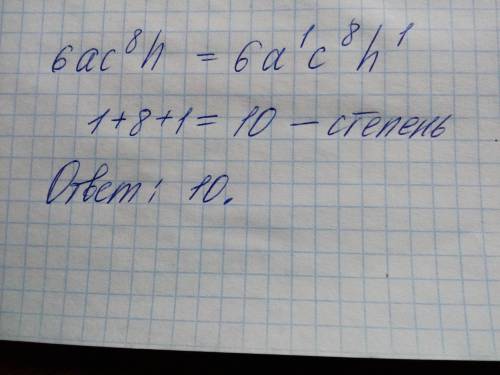 6ac⁸h = 6a¹c⁸h¹
1+8+1 = 10 — степень
Ответ: 10.